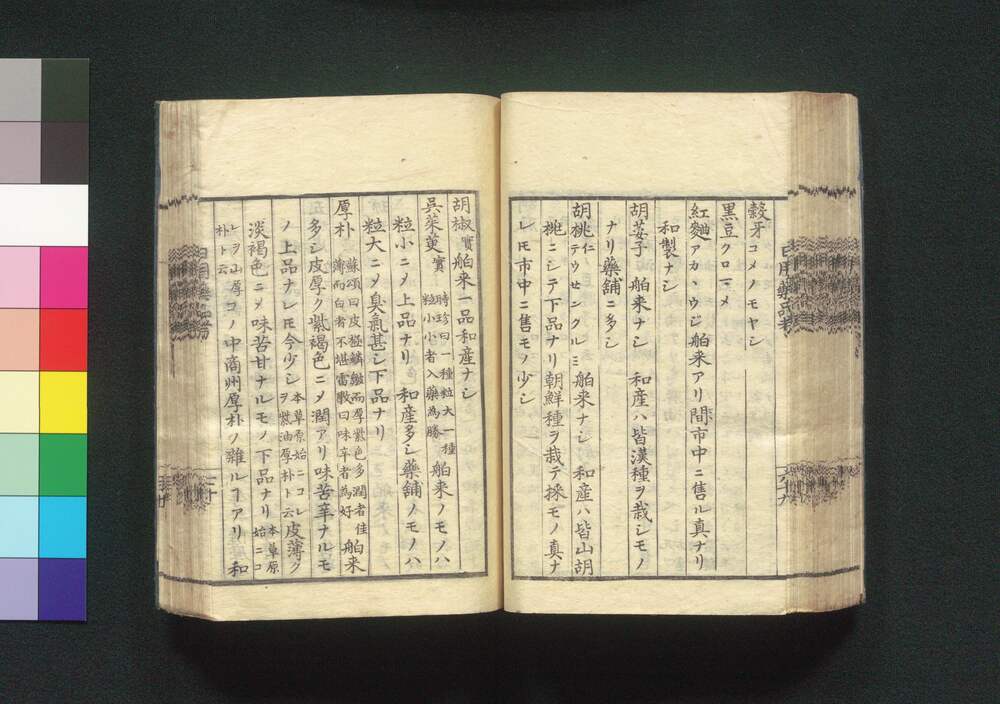 穀牙コメノモヤシ
黒豆クロマメ
紅麹アカヽウジ 舶来アリ間市中ニ售ル真ナリ
和製ナシ
胡荽子 舶来ナシ 和産ハ皆漢種ヲ栽シモノ
ナリ藥舗ニ多シ
胡桃仁テウセンクルミ 舶来ナシ 和産ハ皆山胡
桃ニシテ下品ナリ朝鮮種ヲ栽テ採モノ真ナ
レモ市中ニ售モノ少シ
胡椒實舶来一品和産ナシ
呉茱萸實 時珍曰一種粒大一種粒小小者入藥為勝 舶来ノモノハ
粒小ニメ上品ナリ 和産多シ藥舗ノモノハ
粒大ニメ臭氣甚シ下品ナリ
厚朴 蘇頌曰皮極鱗皺而厚紫色多潤者佳薄而白者不堪雷斆曰味辛者為好 舶来
多シ皮厚ク紫褐色ニメ潤アリ味苦辛ナルモ
ノ上品ナレモ今少シ本草原始ニコレヲ紫油厚朴ト云皮薄ク
淡褐色ニメ味苦甘ナルモノ下品ナリ本草原始ニコ
レヲ山厚朴ト云コノ中商州厚朴ノ雜ルヿアリ 和
日用藥品考